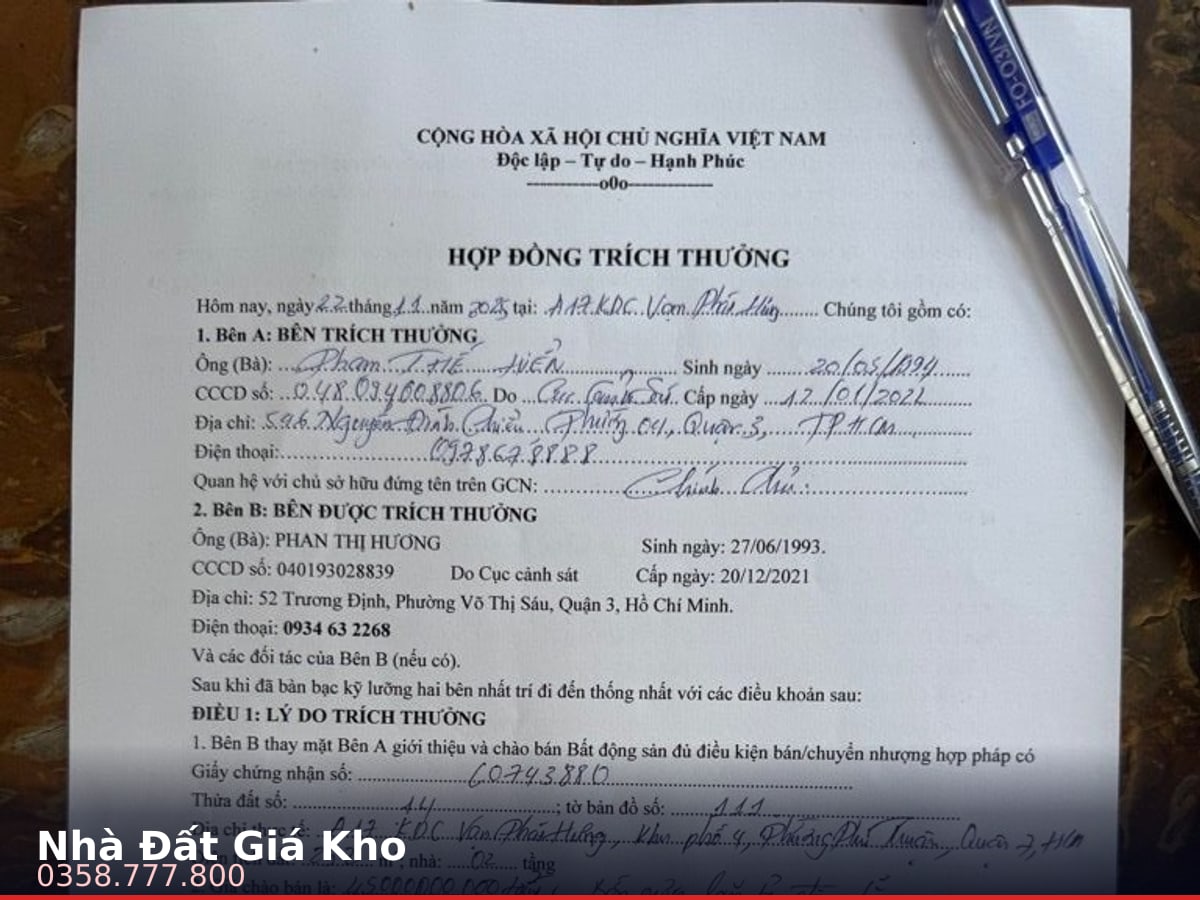 FO-03/VN
CỘNG HÒA XÃ HỘI CHỦ NGHĨA VIỆT NAM
Độc lập – Tự do – Hạnh Phúc
-----------o0o-------------
HỢP ĐỒNG TRÍCH THƯỞNG
Hôm nay, ngày 22 tháng 11 năm 2025 tại: A17 KDC Vạn Phát Hưng........ Chúng tôi gồm có:
1. Bên A: BÊN TRÍCH THƯỞNG
Ông (Bà): Phạm THẾ HIỂN Sinh ngày 20/05/1994
CCCD số: 048094008806 Do Cục Cảnh Sát Cấp ngày 12/01/2022
Địa chỉ: 596 Nguyễn Đình Chiểu Phường 04, Quận 3, TP HCM
Điện thoại: 0978678888
Quan hệ với chủ sở hữu đứng tên trên GCN: Chính Chủ
2. Bên B: BÊN ĐƯỢC TRÍCH THƯỞNG
Ông (Bà): PHAN THỊ HƯƠNG Sinh ngày: 27/06/1993.
CCCD số: 040193028839 Do Cục cảnh sát Cấp ngày: 20/12/2021
Địa chỉ: 52 Trương Định, Phường Võ Thị Sáu, Quận 3, Hồ Chí Minh.
Điện thoại: 0934 63 2268
Và các đối tác của Bên B (nếu có).
Sau khi đã bàn bạc kỹ lưỡng hai bên nhất trí đi đến thống nhất với các điều khoản sau:
ĐIỀU 1: LÝ DO TRÍCH THƯỞNG
1. Bên B thay mặt Bên A giới thiệu và chào bán Bất động sản đủ điều kiện bán/chuyển nhượng hợp pháp có
Giấy chứng nhận số: 60743880
Thửa đất số: 14 ; tờ bản đồ số: 111
Địa chỉ thực tế: A17 KDC Vạn Phát Hưng, khu phố 4, Phường Phú Thuận, Quận 7, HCM
nhà: 02 tầng
chào bán là:
Nhà Đất Giá Kho
0358.777.800